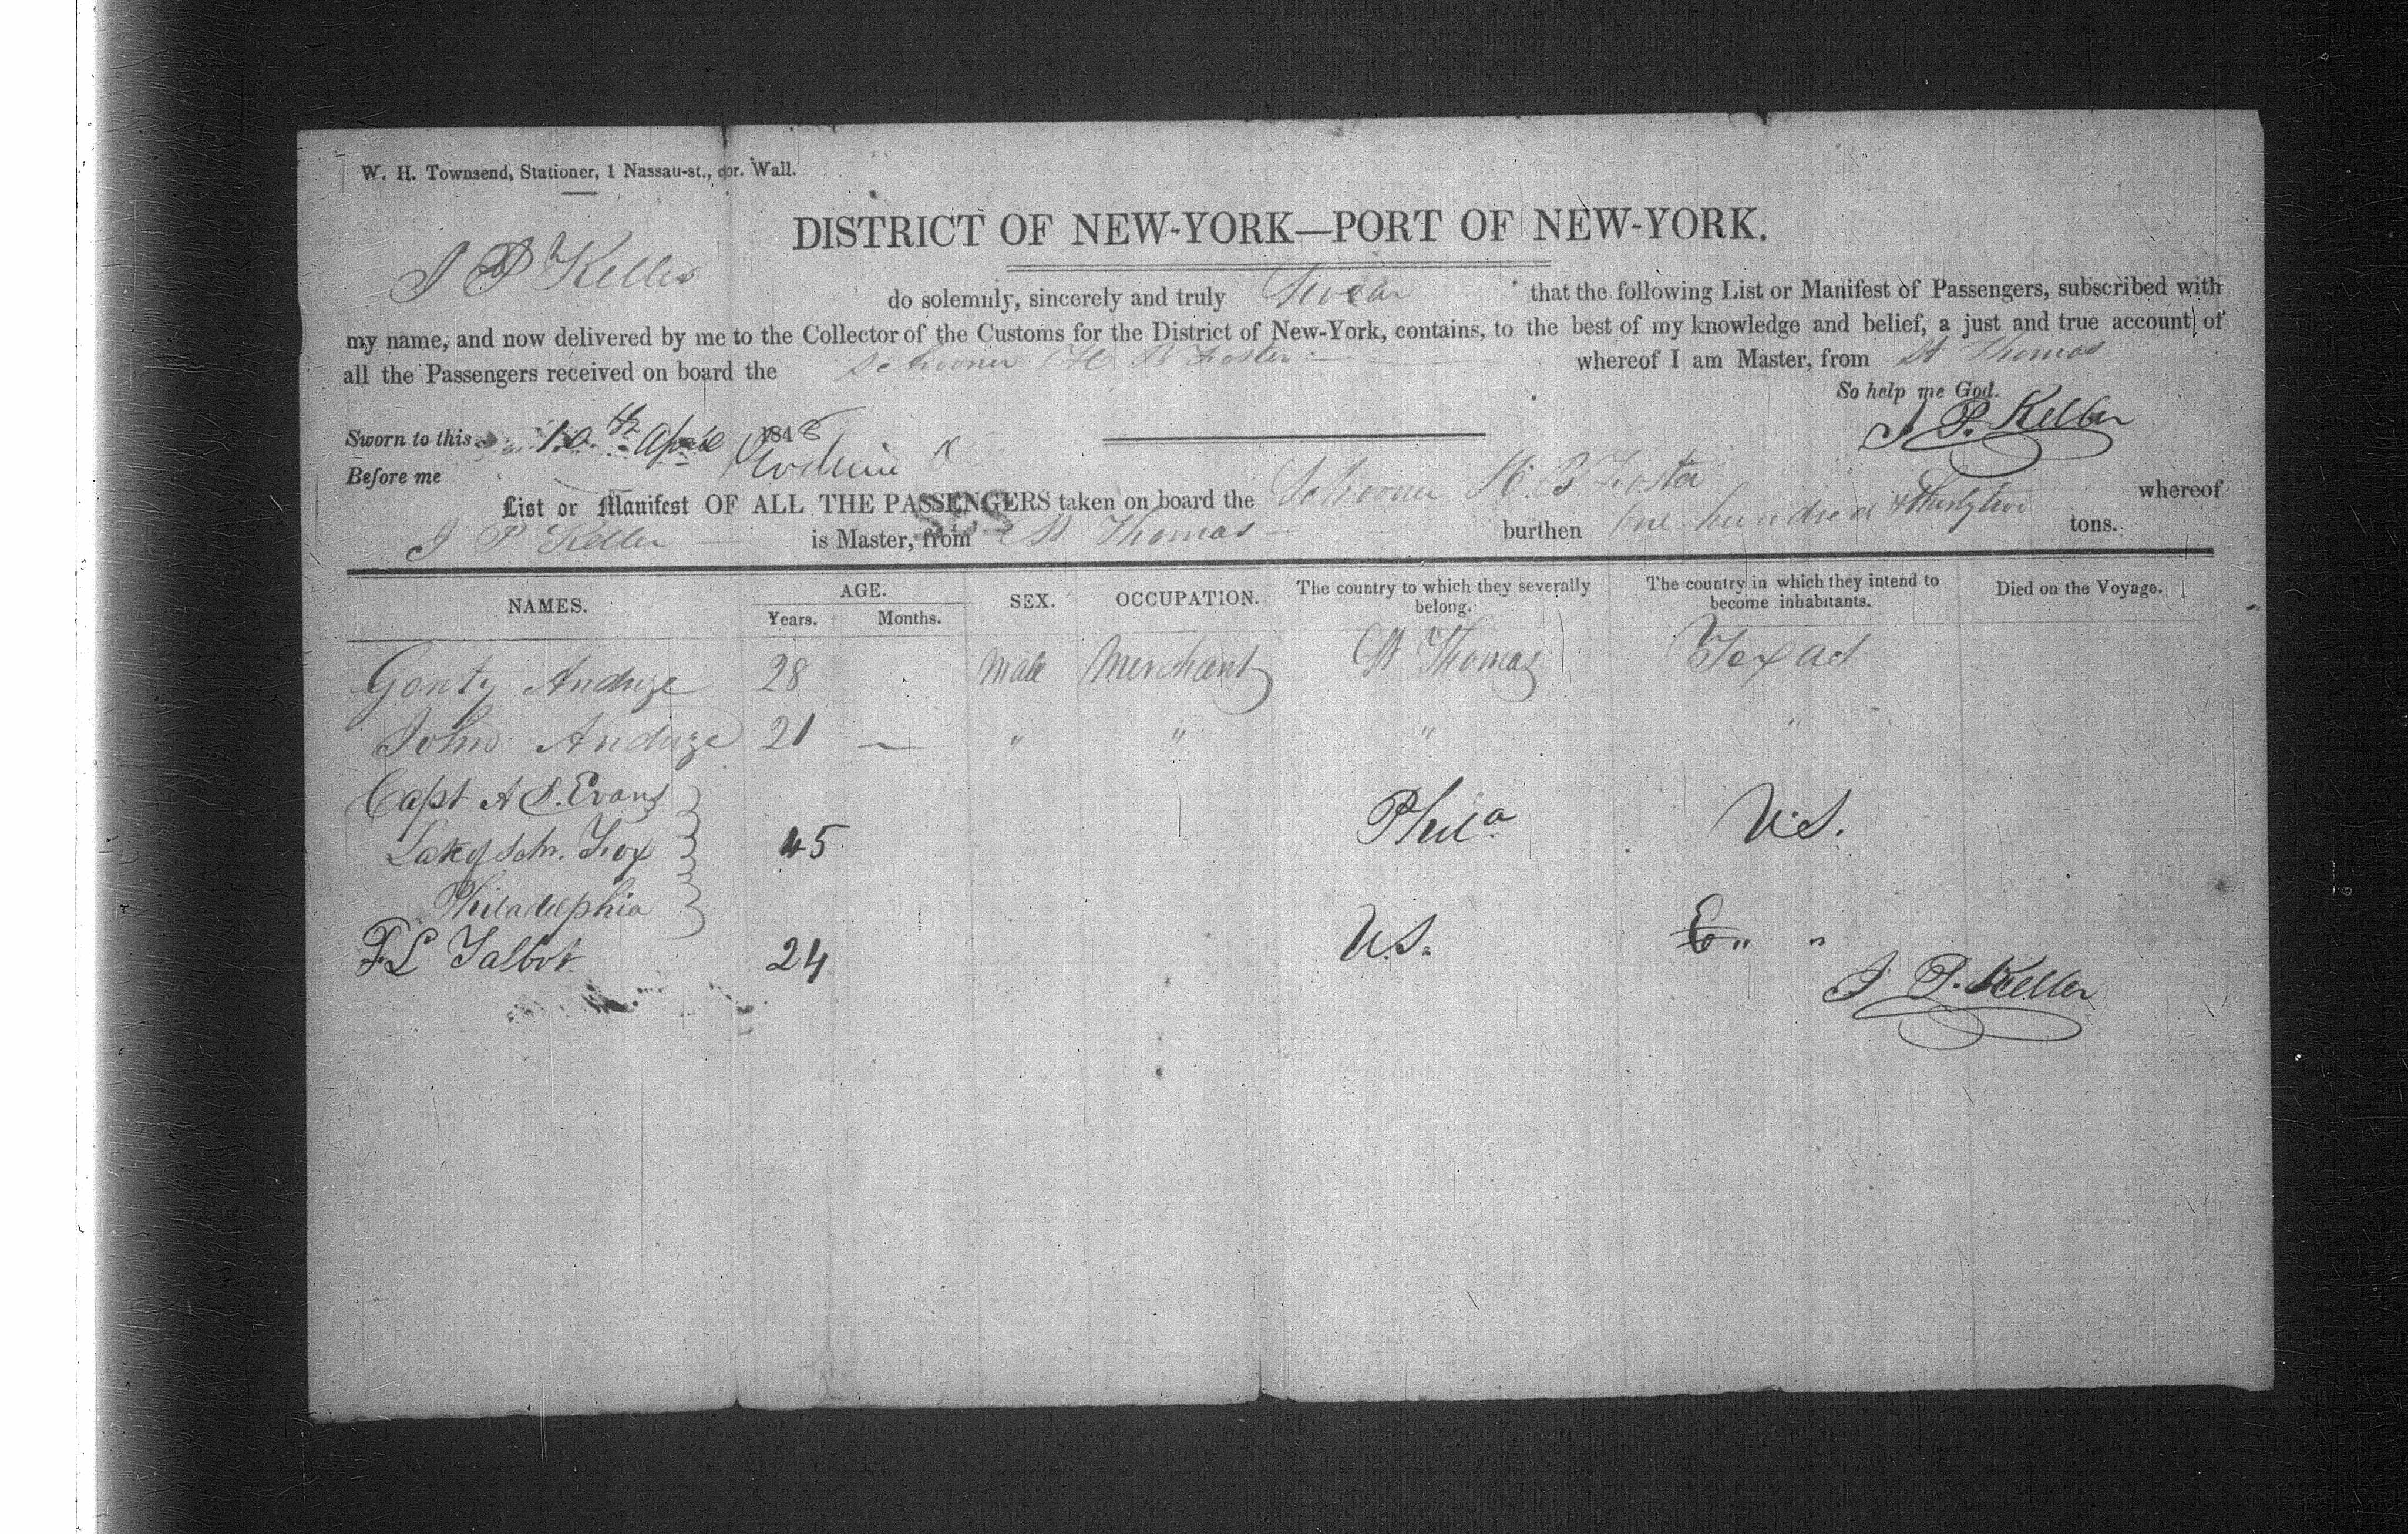 W. H. Townsend, Stationer, 1 Nassau-st., cor. Wall.
DISTRICT OF NEW-YORK—PORT OF NEW-YORK.
J P Keller do solemnly, sincerely and truly Swear that the following List or Manifest of Passengers, subscribed with
my name, and now delivered by me to the Collector of the Customs for the District of New-York, contains, to the best of my knowledge and belief, a just and true account of
all the Passengers received on board the Schooner H B Foster whereof I am Master, from St Thomas
So help me God.
Sworn to this 10th April 1848 J P. Keller
Before me
List or Manifest OF ALL THE PASSENGERS taken on board the Schooner H. B. Foster whereof
J P Keller is Master, from St Thomas burthen One hundred & Thirty two tons.
NAMES. AGE. Years. Months. SEX. OCCUPATION. The country to which they severally belong. The country in which they intend to become inhabitants. Died on the Voyage.
Genty Anduze 28 Male Merchant St Thomas Texas
John Anduze 21 — " " " "
Capt A S. Evans
Late of Schr. Troy 45 Phila U.S.
Philadelphia
F L Talbot 24 U.S. " "
J P. Keller